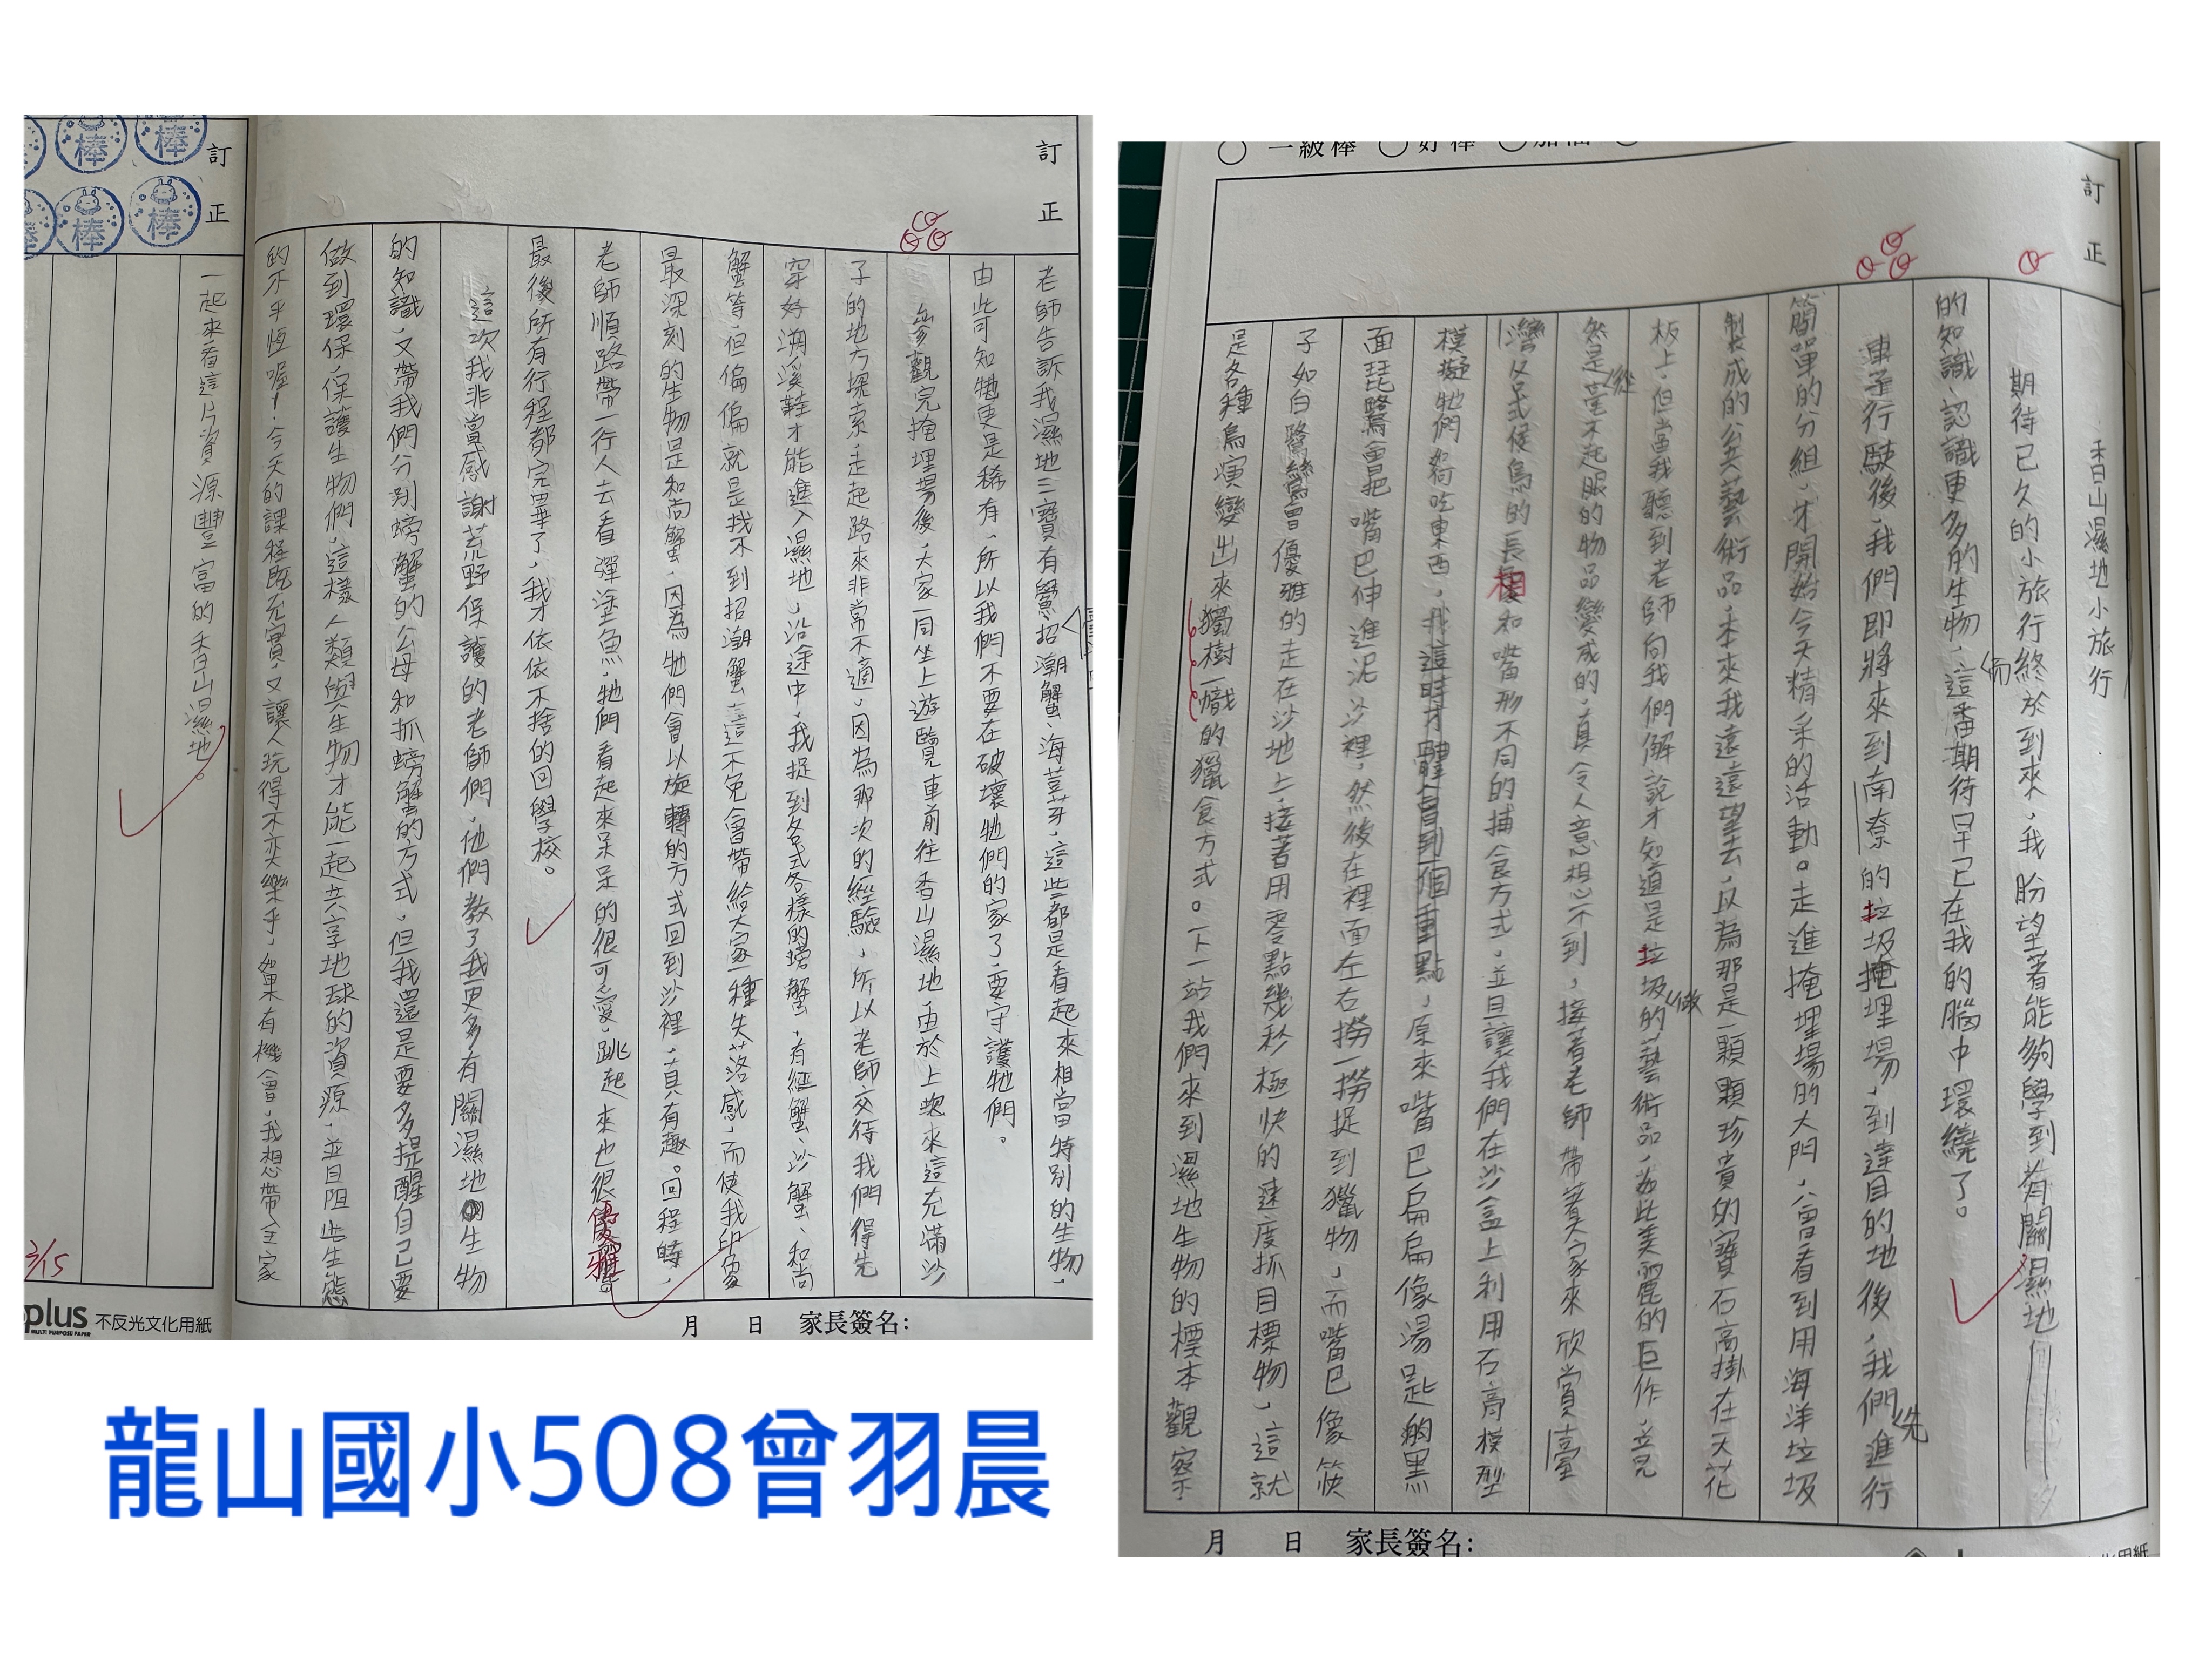 一級棒
好棒
訂正
香山濕地小旅行
期待已久的小旅行終於到來，我盼望著能夠學到有關濕地
的知識、認識更多的生物，而這番期待早已在我的腦中環繞了。
車子行駛後，我們即將來到南寮的垃圾掩埋場，到達目的地後，我們先進行
簡單的分組，才開始今天精采的活動。走進掩埋場的大門，會看到用海洋垃圾
製成的公共藝術品，本來我遠遠望去，以為那是一顆顆珍貴的寶石高掛在天花
板上，但當我聽到老師向我們解說才知道是垃圾做的藝術品，如此美麗的巨作，竟
然是從毫不起眼的物品變成的，真令人意想不到，接著老師帶著大家來欣賞臺
灣各式候鳥的長相和嘴形不同的捕食方式，並且讓我們在沙盒上利用石膏模型
模擬牠們獵吃東西，我這時才體會到一個重點，原來嘴巴扁扁像湯匙的黑
面琵鷺會把嘴巴伸進泥沙裡，然後在裡面左右撈一撈捉到獵物，而嘴巴像筷
子如白鷺鷥會優雅的走在沙地上，接著用零點幾秒極快的速度抓目標物，這就
是各種鳥演變出來獨樹一幟的獵食方式。下一站我們來到濕地生物的標本觀察
月 日 家長簽名：
訂正
老師告訴我濕地三寶有鱟、招潮蟹、海荳芽，這些都是看起來相當特別的生物，
由此可知牠更是稀有，所以我們不要在破壞牠們的家了，要守護牠們。
參觀完掩埋場後，大家一同坐上遊覽車前往香山濕地，由於上次來這充滿沙
子的地方探索，走起路來非常不適，因為那次的經驗，所以老師交待我們得先
穿好溯溪鞋才能進入濕地，沿途中，我捉到各式各樣的螃蟹，有經蟹、沙蟹、和尚
蟹等，但偏偏就是找不到招潮蟹，這不免會帶給大家一種失落感，而使我印象
最深刻的生物是和尚蟹，因為牠們會以旋轉的方式回到沙裡，真有趣。回程時，
老師順路帶一行人去看彈塗魚，牠們看起來呆呆的很可愛，跳起來也很優雅
最後所有行程都完畢了，我才依依不捨的回學校。
這次我非常感謝荒野保護的老師們，他們教了我更多有關濕地的生物
的知識，又帶我們分別螃蟹的公母和抓螃蟹的方式，但我還是要多提醒自己要
做到環保，保護生物們，這樣人類與生物才能一起共享地球的資源，並且阻止生態
的不平恆喔！今天的課程既充實，又讓人玩得不亦樂乎，如果有機會，我想帶全家
月 日 家長簽名：
訂正
棒
棒
棒
棒
一起來看這片資源豐富的香山濕地。
3/15
plus
MULTI PURPOSE PAPER
不反光文化用紙
龍山國小508曾羽晨